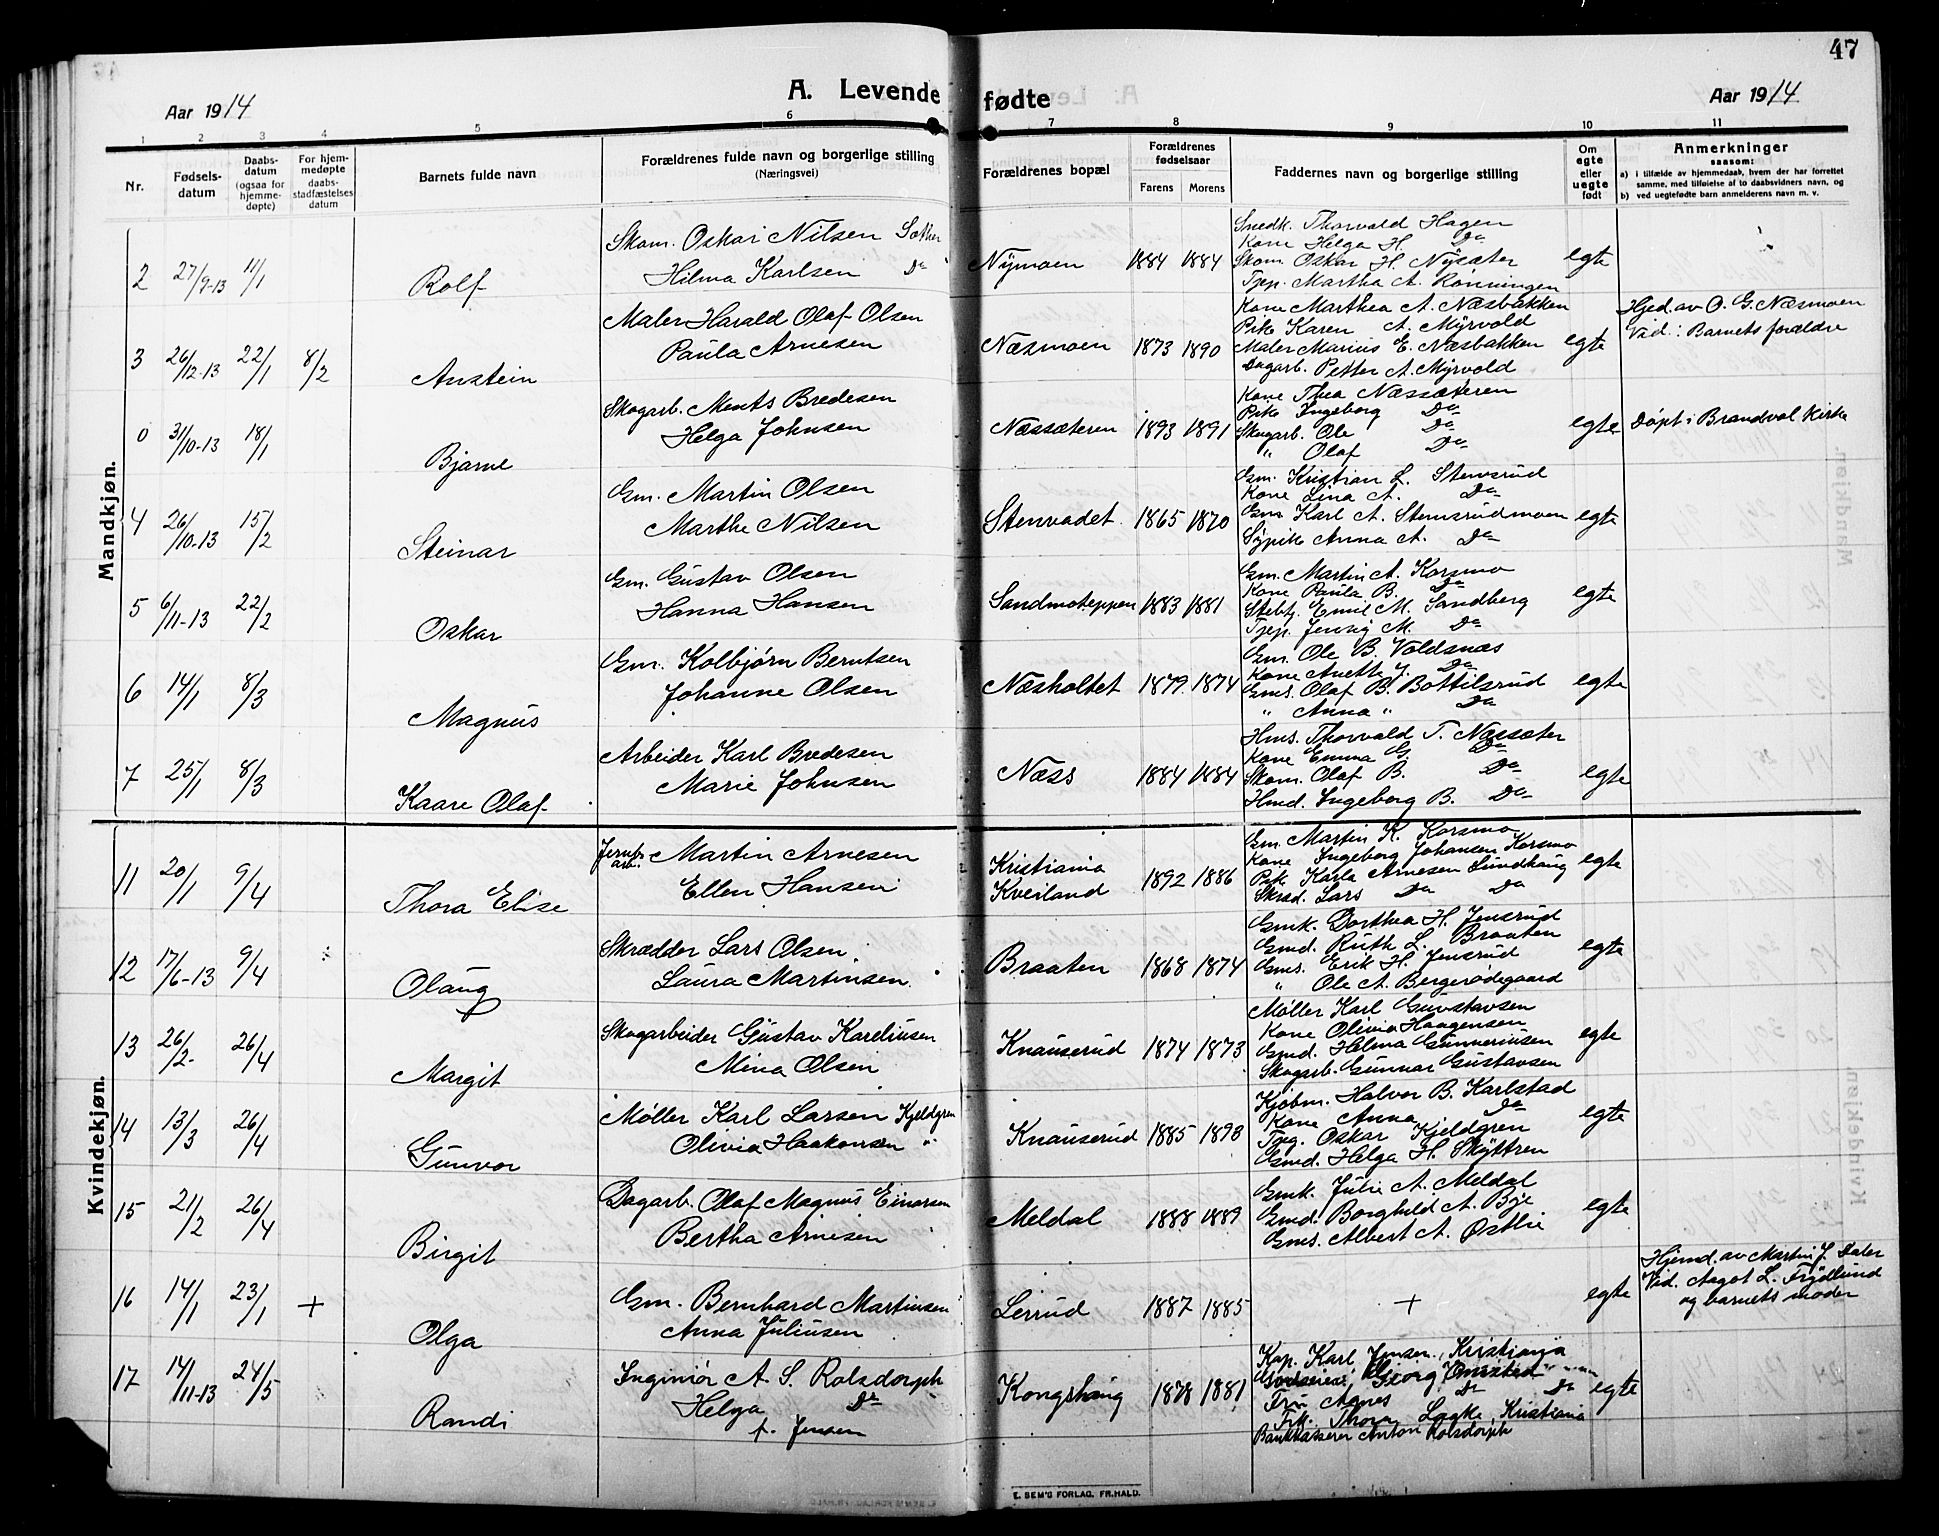 47
Aar 1914
A. Levende fødte
Aar 1914
1 2 3 4 5 6 7 8 9 10 11
Nr.
Fødsels-
datum
Daabs-
datum
(ogsaa for
hjemme-
døpte)
For hjem-
medøpte
daabs-
stadfæstelses
datum
Barnets fulde navn
Forældrenes fulde navn og borgerlige stilling
(Næringsvei)
Forældrenes bopæl
Forældrenes
fødselsaar
Farens Morens
Faddernes navn og borgerlige stilling
Om
egte
eller
uegte
født
Anmerkninger
saasom:
a) i tilfælde av hjemmedaab, hvem der har forrettet
samme, med tilføielse af to daabsvidners navn, og
b) ved uegtefødte barn anmelderens navn m. v.
Mandkjøn.
2 27/9-13 11/1 Rolf
Skom. Oskar Nilsen Sæther
Hilma Karlsen Do
Nymoen 1884 1884
Snedk. Thorvald Hagen
Kone Helga H. Do
Skom. Oskar H. Nysæter
Tjep. Martha A. Rønningen
egte
3 26/12-13 22/1 8/2 Anstein
Maler Harald Olaf Olsen
Paula Arnesen
Næsmoen 1873 1890
Kone Marthea A. Næsbakken
Pike Karen A. Myrvold
Maler Marius E. Næsbakken
Dagarb. Petter A. Myrvold
egte
Hjed. av O. G. Næsmoen
Vid.: Barnets forældre
0 31/10-13 18/1 Bjarne
Skogarb. Ments Bredesen
Helga Johnsen
Næssæteren 1893 1891
Kone Thea Næssæteren
Pike Ingeborg Do
Skogarb. Ole Do
" Olaf Do
egte
Døpt i Brandval Kirke
4 26/10-13 15/2 Steinar
Gm. Martin Olsen
Marthe Nilsen
Stenvadet 1865 1870
Gm. Kristian L. Stensrud
Kone Lina A. Do
Gm. Karl A. Stensrudmoen
Sypik Anna A. Do
egte
5 6/11-13 22/2 Oskar
Gm. Gustav Olsen
Hanna Hansen
Sandmoteppen 1883 1881
Gm. Martin A. Korsmo
Kone Paula B. Do
Emil M. Sandberg
Tjep. Jenny M. Do
egte
6 14/1 8/3 Magnus
Gm. Kolbjørn Berntsen
Johanne Olsen
Næsholtet 1879 1874
Gm. Ole B. Voldsnæs
Kone Anette J. Do
Gms. Olaf B. Bottilsrud
" Anna " Do
egte
7 25/1 8/3 Kaare Olaf
Arbeider Karl Bredesen
Marie Johnsen
Næss 1884 1884
Hms. Thorvald T. Næssæter
Kone Emma G. Do
Skom. Olaf B. Do
Hmd. Ingeborg B. Do
egte
Kvindekjøn.
11 20/1 9/4 Thora Elise
Jernb. arb. Martin Arnesen
Ellen Hansen
Kristiania
Kveiland 1892 1886
Gm. Martin K. Korsmo
Kone Ingeborg Johansen Korsmo
Pik. Karla Arnesen Lundhaug
Skræd. Lars Do Do
egte
12 17/6-13 9/4 Olaug
Skrædder Lars Olsen
Laura Martinsen
Braaten 1868 1874
Gmk. Dorthea H. Jensrud
Gmd. Ruth L. Braaten
Gms. Erik H. Jensrud
" Ole A. Bergerødegaard
egte
13 26/2- 26/4 Margit
Skogarbeider Gustav Kareliusen
Mina Olsen
Knauserud 1874 1873
Møller Karl Gustavsen
Kone Olivia Haagensen
Gmd. Helma Gunneriusen
Skogarb. Gunnar Gustavsen
egte
14 13/3 26/4 Gunvor
Møller Karl Larsen Kjeldgren
Olivia Haakonsen "
Knauserud 1885 1898
Kjøbm. Halvor B. Karlstad
Kone Anna Do
Oskar Kjeldgren
Gmd. Helga H. Skyttren
egte
15 21/2 26/4 Birgit
Dagarb. Olaf Magnus Einarsen
Bertha Arnesen
Meldal 1888 1889
Gmk. Julie A. Meldal
Gmd. Borghild A. Bye
Gms. Albert A. Østlie
egte
16 14/1 23/1 + Olga
Gm. Bernhard Martinsen
Anna Juliusen
Lerrud 1887 1885
+
egte
Hjemd. av Martin J. Daler
Vid. Aagot L. Frydlund
og barnets moder
17 14/11-13 24/5 Randi
Ingeniør A. S. Rolsdorph
Helga Do
f. Jensen
Kongshaug 1878 1881
Kap. Karl Jensen, Kristiania
Georg Omsted
Fru Agnes Do Do
Frk. Thora Kristiania
Bankkasserer Anton Rolsdorph
egte
E. SEM'S FORLAG, FR.HALD.